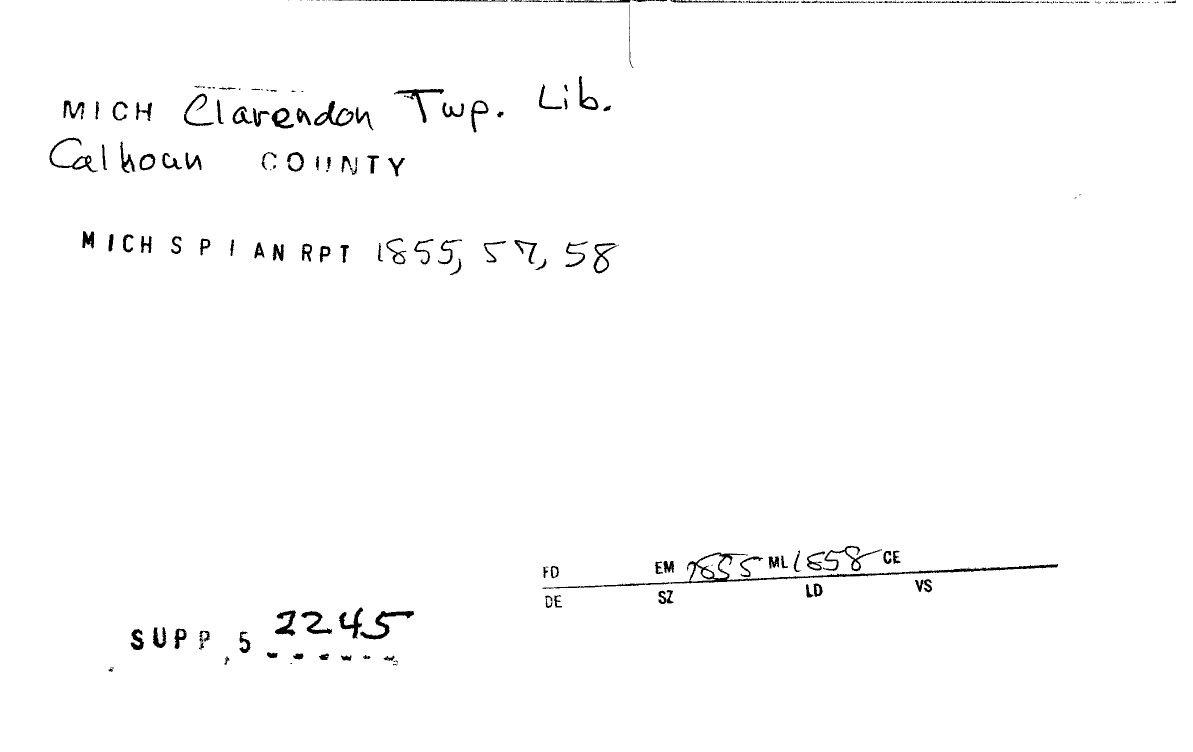 MICH Clarendon Twp. Lib.
Calhoun COUNTY
MICH S P I AN RPT 1855, 57, 58
FD EM 1855 ML 1858 CE
DE SZ LD VS
SUPP, 5 2245